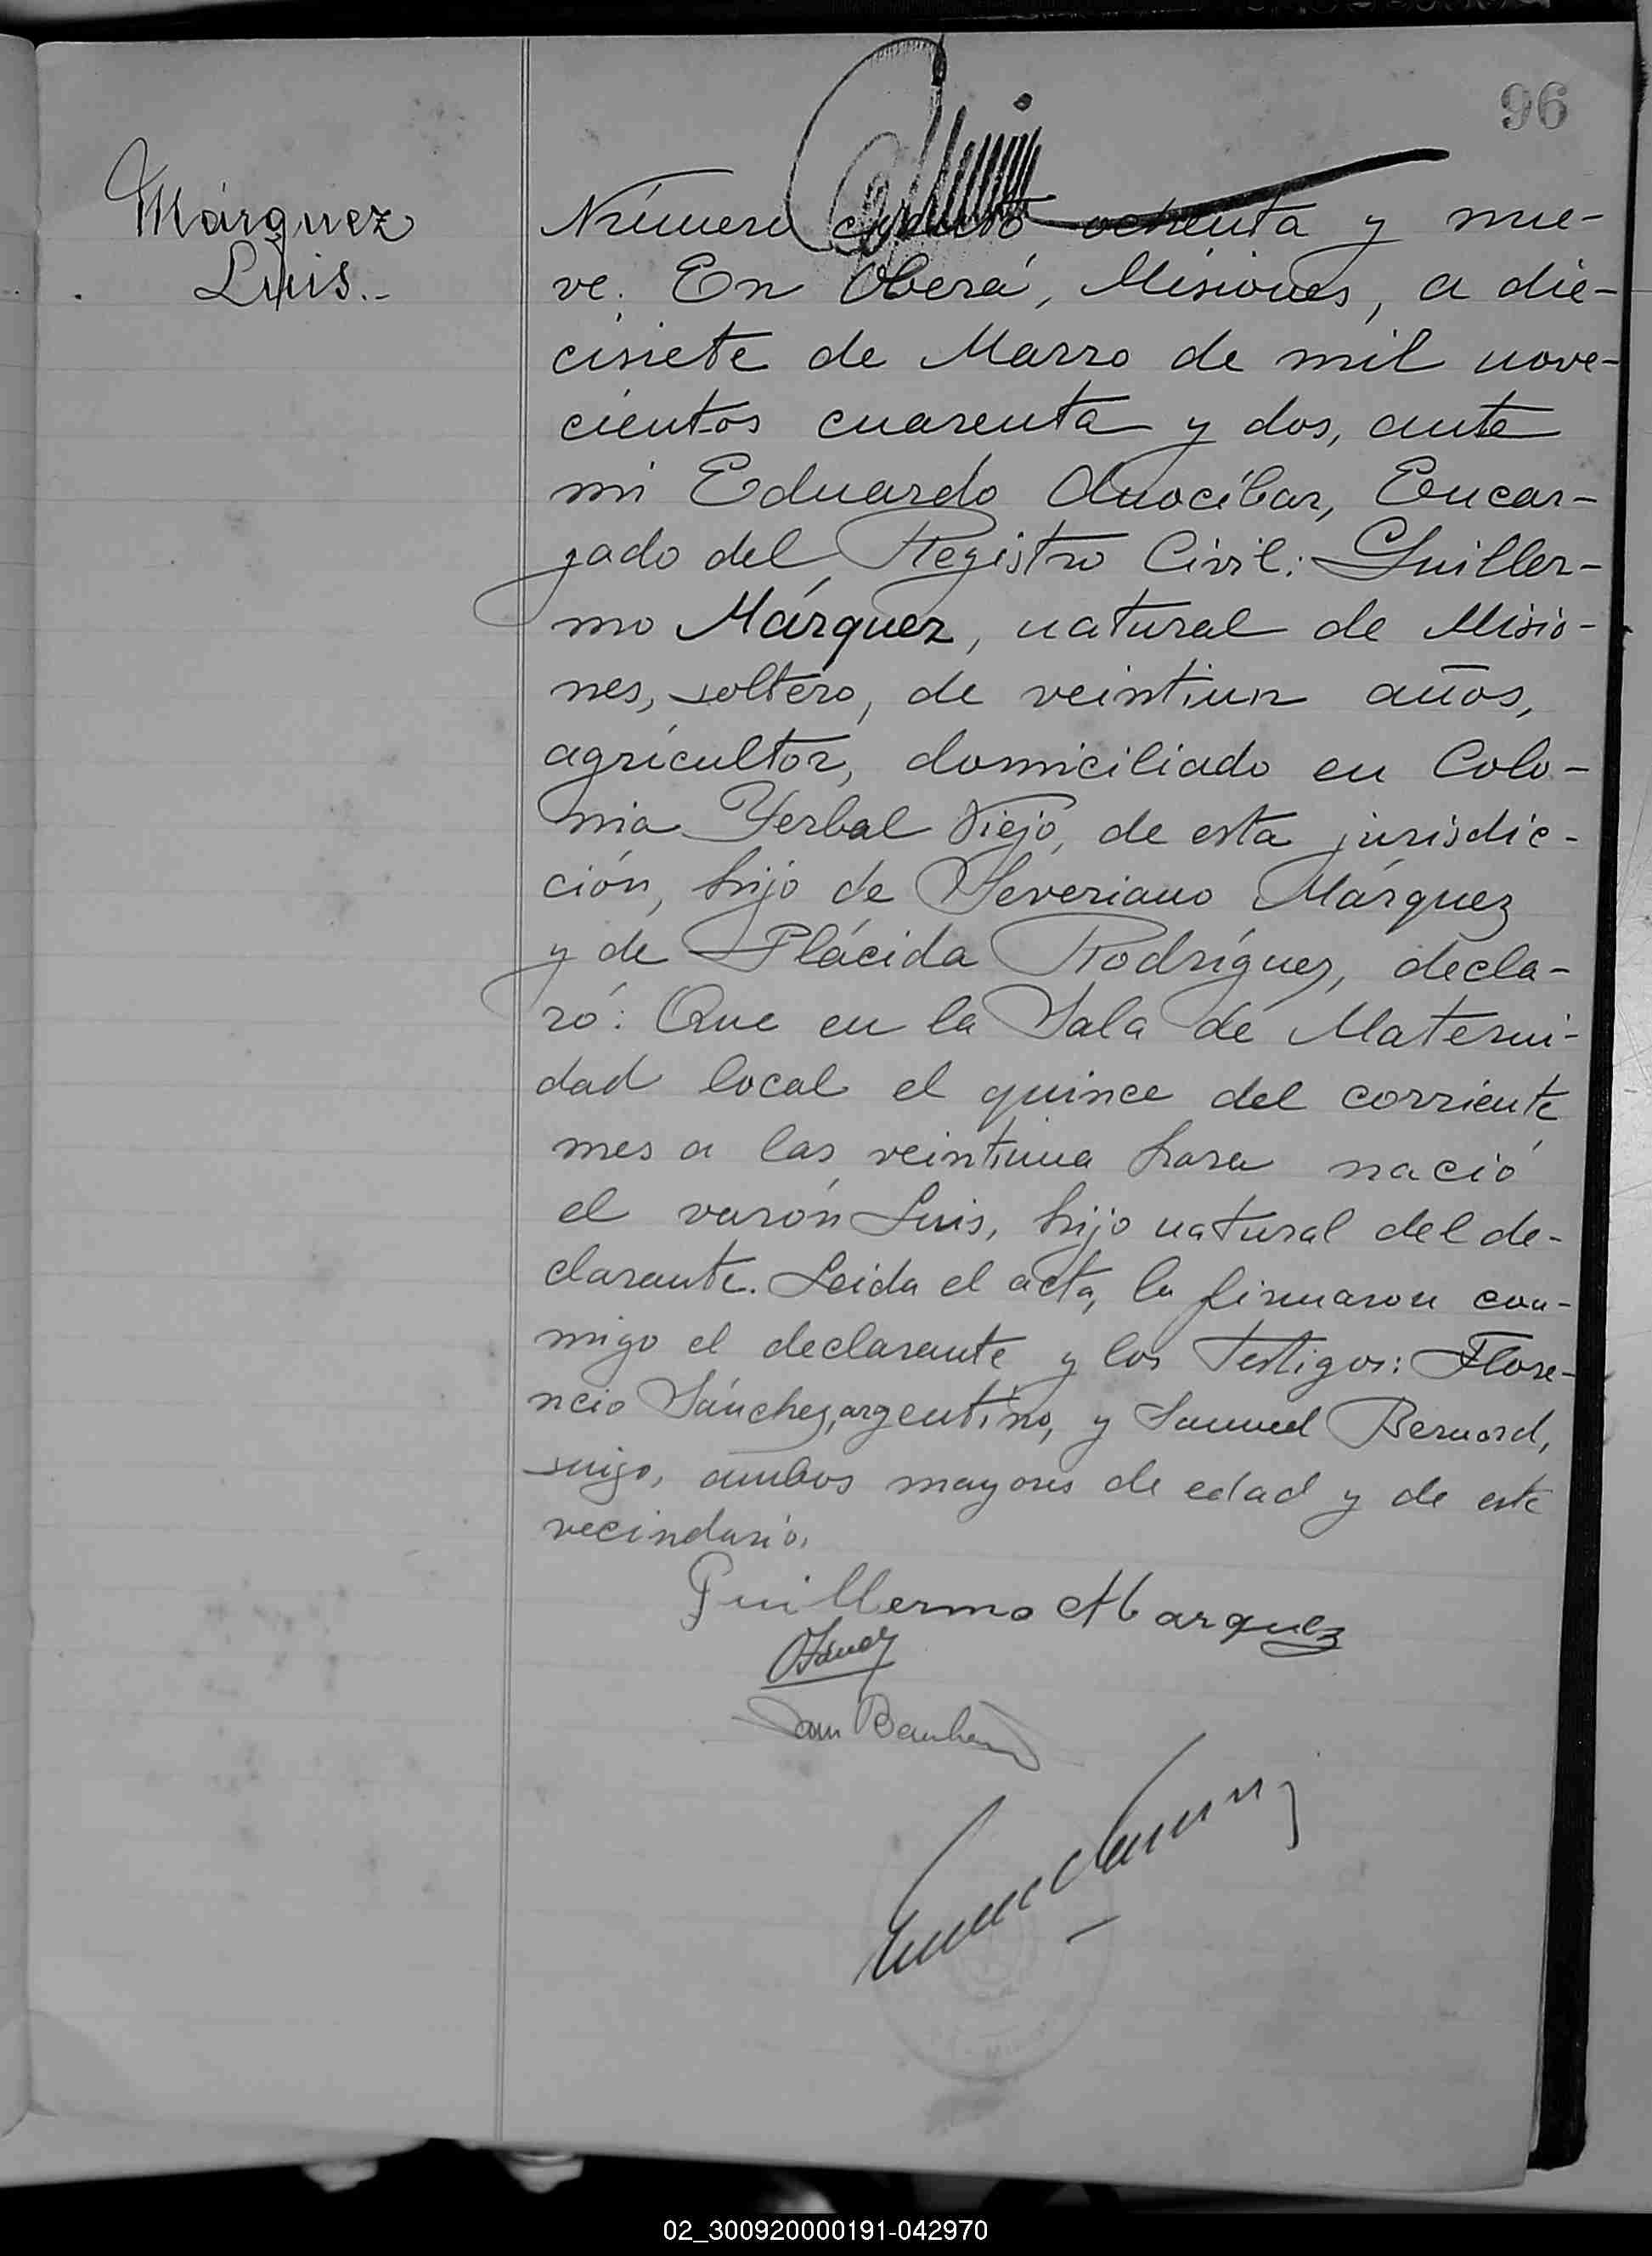 96
Márquez
Luis.-
Número ciento ochenta y nue-
ve. En Oberá, Misiones, a die-
cisiete de Marzo de mil nove-
cientos cuarenta y dos, ante
mi Eduardo Anocíbar, Encar-
gado del Registro Civil: Guiller-
mo Márquez, natural de Misio-
nes, soltero, de veintiun años,
agricultor, domiciliado en Colo-
nia Yerbal Viejo, de esta jurisdic-
ción, hijo de Severiano Márquez
y de Plácida Rodríguez, decla-
ró: Que en la Sala de Materni-
dad local el quince del corriente
mes a las veintiuna hora nació
el varón Luis, hijo natural del de-
clarante. Leida el acta, la firmaron con-
migo el declarante y los testigos: Flore-
ncio Sánchez, argentino, y Samuel Bernard,
suizo, ambos mayores de edad y de este
vecindario.
Guillermo Marquez
02_300920000191-042970